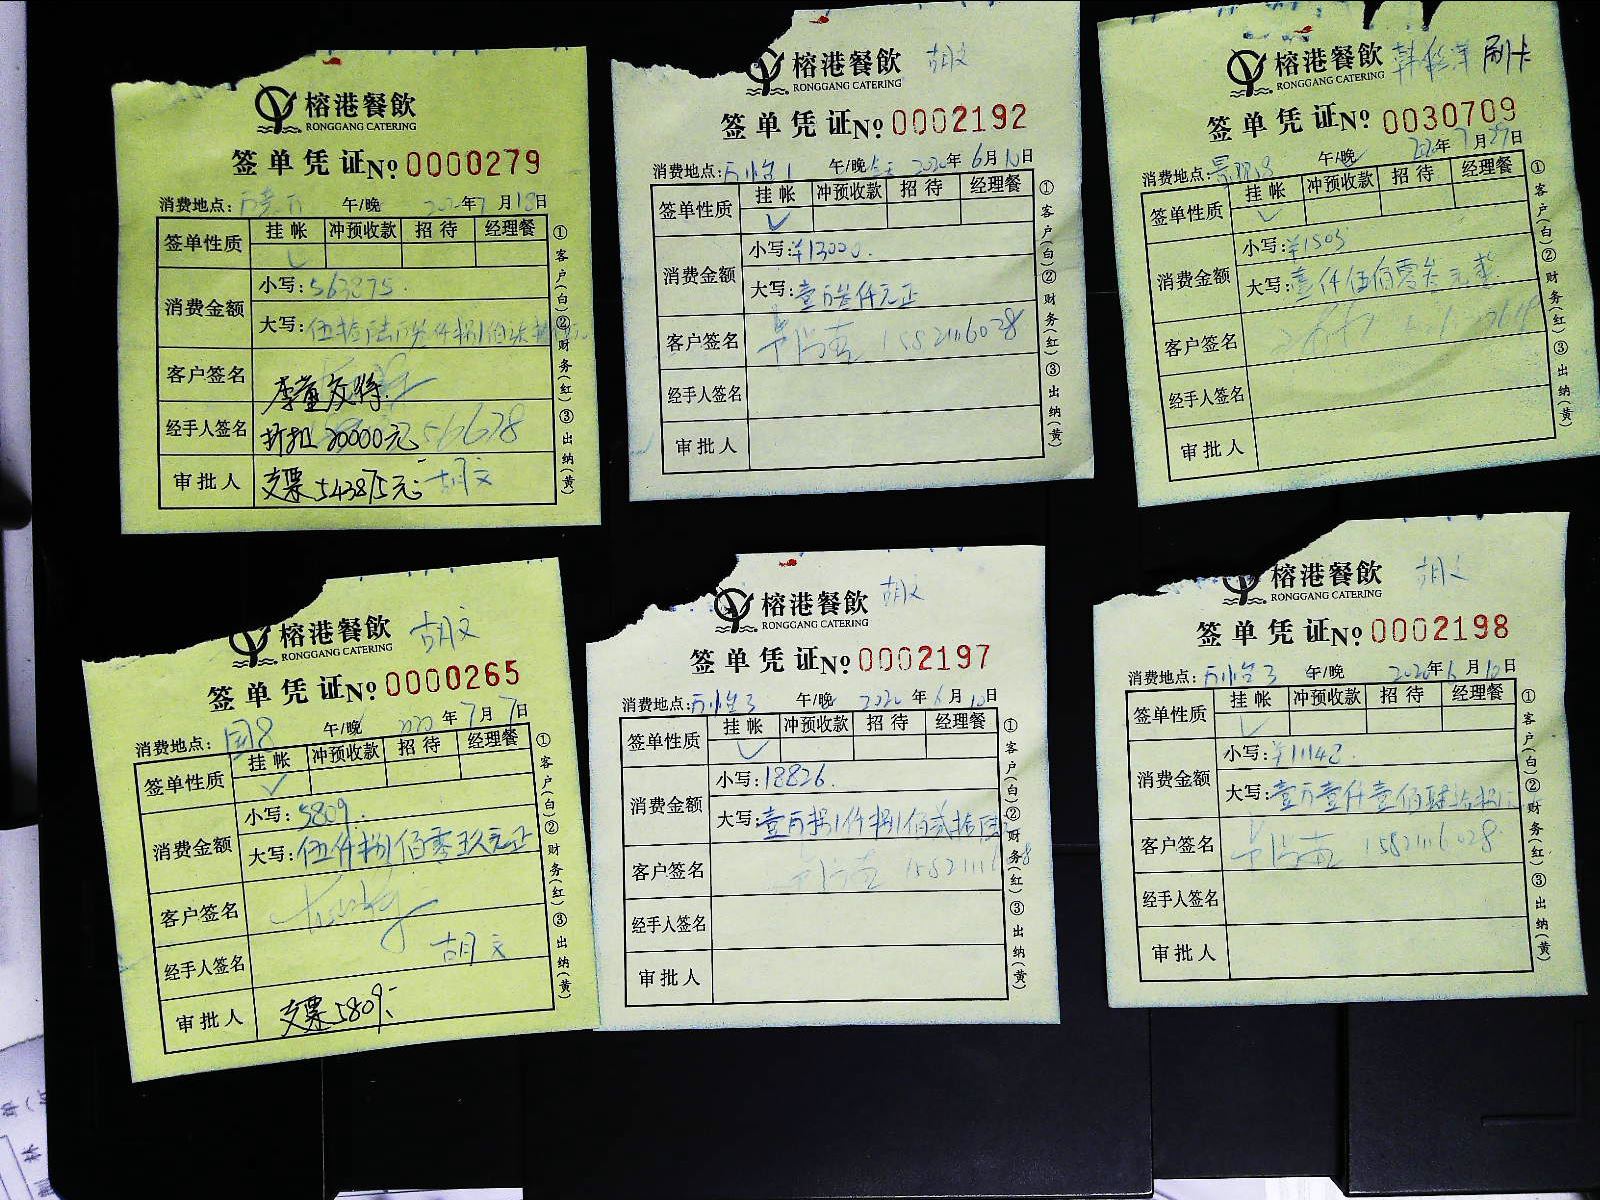 榕港餐飲
RONGGANG CATERING
签单凭证 No 0000279
消费地点: 午/晚 2020年7月18日
签单性质 挂帐 冲预收款 招待 经理餐
消费金额 小写: 563875.
大写: 伍拾陆万叁仟捌佰柒拾
客户签名 李董交待.
经手人签名 折扣20000元 56628
审批人 支票543875元. 胡文
①客户(白)②财务(红)③出纳(黄)
榕港餐飲 胡文
RONGGANG CATERING
签单凭证 No 0002192
消费地点: 午/晚 2020年6月10日
签单性质 挂帐 冲预收款 招待 经理餐
消费金额 小写: ¥13000.
大写: 壹万叁仟元正
客户签名 15821116028
经手人签名
审批人
①客户(白)②财务(红)③出纳(黄)
榕港餐飲 刷卡
RONGGANG CATERING
签单凭证 No 0030709
消费地点: 午/晚 年7月27日
签单性质 挂帐 冲预收款 招待 经理餐
消费金额 小写: ¥1505
大写: 壹仟伍佰零 元整
客户签名
经手人签名
审批人
①客户(白)②财务(红)③出纳(黄)
榕港餐飲 胡文
RONGGANG CATERING
签单凭证 No 0000265
消费地点: 午/晚 2020年7月7日
签单性质 挂帐 冲预收款 招待 经理餐
消费金额 小写: 5809.
大写: 伍仟捌佰零玖元正
客户签名
经手人签名 胡文
审批人 支票5809.
①客户(白)②财务(红)③出纳(黄)
榕港餐飲 胡文
RONGGANG CATERING
签单凭证 No 0002197
消费地点: 午/晚 2020年6月10日
签单性质 挂帐 冲预收款 招待 经理餐
消费金额 小写: 18826.
大写: 壹万捌仟捌佰贰拾陆
客户签名
经手人签名
审批人
①客户(白)②财务(红)③出纳(黄)
榕港餐飲 胡文
RONGGANG CATERING
签单凭证 No 0002198
消费地点: 午/晚 2020年6月10日
签单性质 挂帐 冲预收款 招待 经理餐
消费金额 小写: ¥11148.
大写: 壹万壹仟壹佰肆拾捌元
客户签名 15821116028
经手人签名
审批人
①客户(白)②财务(红)③出纳(黄)